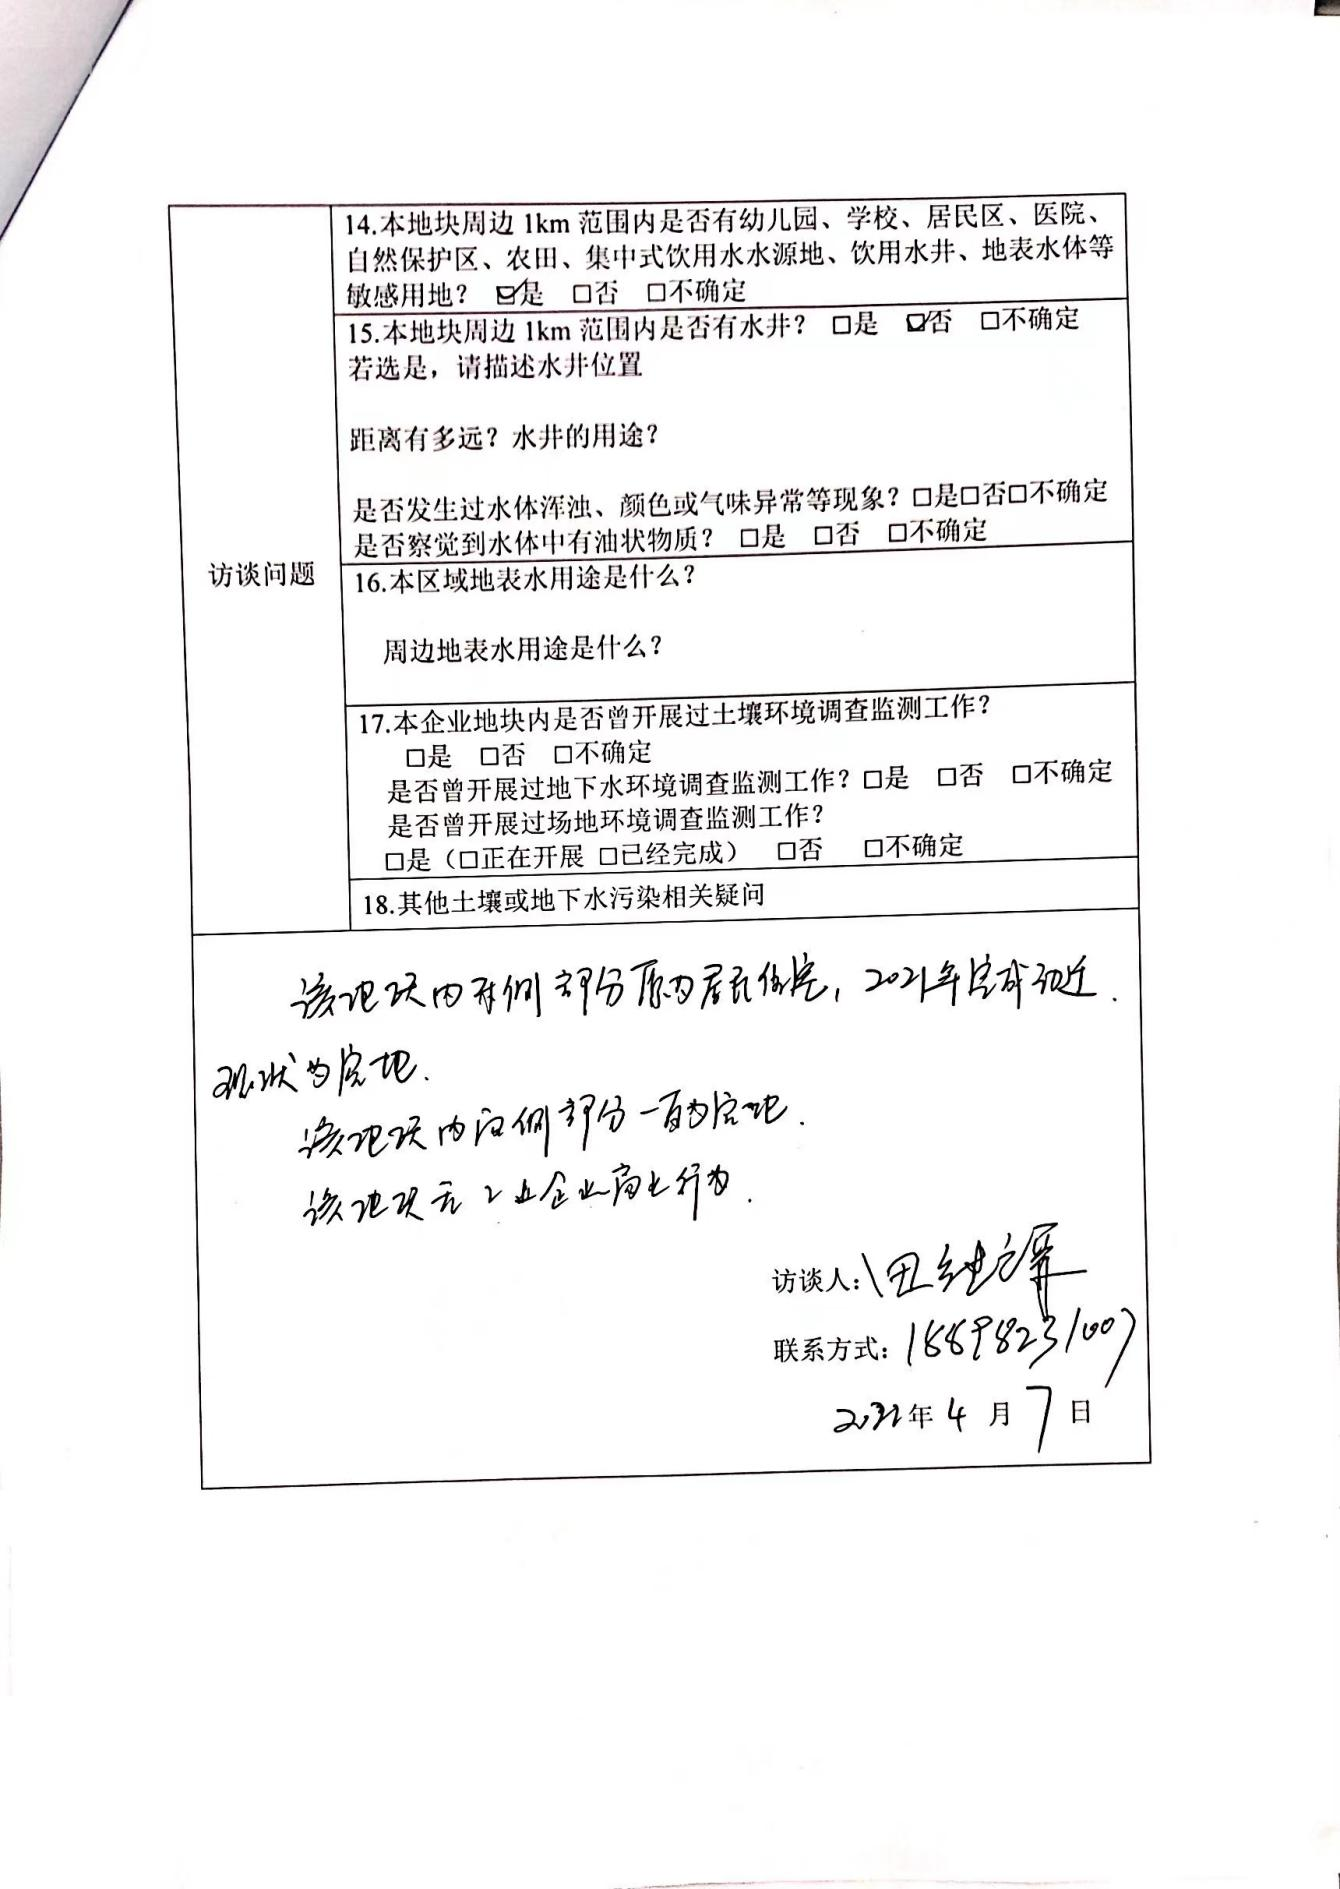 14.本地块周边 1km 范围内是否有幼儿园、学校、居民区、医院、
自然保护区、农田、集中式饮用水水源地、饮用水井、地表水体等
敏感用地？ ☑是 □否 □不确定
15.本地块周边 1km 范围内是否有水井？ □是 ☑否 □不确定
若选是，请描述水井位置
距离有多远？水井的用途？
是否发生过水体浑浊、颜色或气味异常等现象？□是□否□不确定
是否察觉到水体中有油状物质？ □是 □否 □不确定
访谈问题
16.本区域地表水用途是什么？
周边地表水用途是什么？
17.本企业地块内是否曾开展过土壤环境调查监测工作？
□是 □否 □不确定
是否曾开展过地下水环境调查监测工作？□是 □否 □不确定
是否曾开展过场地环境调查监测工作？
□是（□正在开展 □已经完成） □否 □不确定
18.其他土壤或地下水污染相关疑问
该地块内 侧部分原为居民住宅，2021年完成动迁.
现状为空地.
该地块内 侧部分一直为空地.
该地块无工业企业商业行为.
访谈人: 田
联系方式: 18898231007
2022年 4 月 7 日